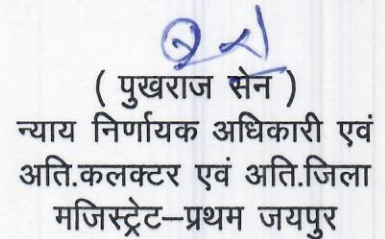 ( पुखराज सेन )
न्याय निर्णायक अधिकारी एवं
अति.कलक्टर एवं अति.जिला
मजिस्ट्रेट–प्रथम जयपुर